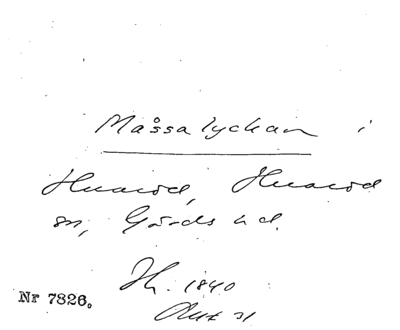 Måssalyckan i
Huaröd, Huaröd
sn, Gärds hd.
Jh. 1840
Akt 31
Nr 7826.